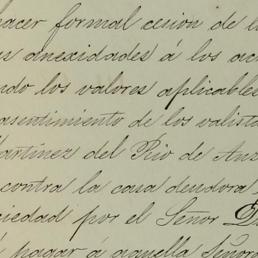 hacer formal cesion de l
anexidades á los ac
ndo los valores aplicables
asentimiento de los valista
Martinez del Rio de Anz
contra la casa deudora
iedad por el Señor D
á pagar á aquella Señor